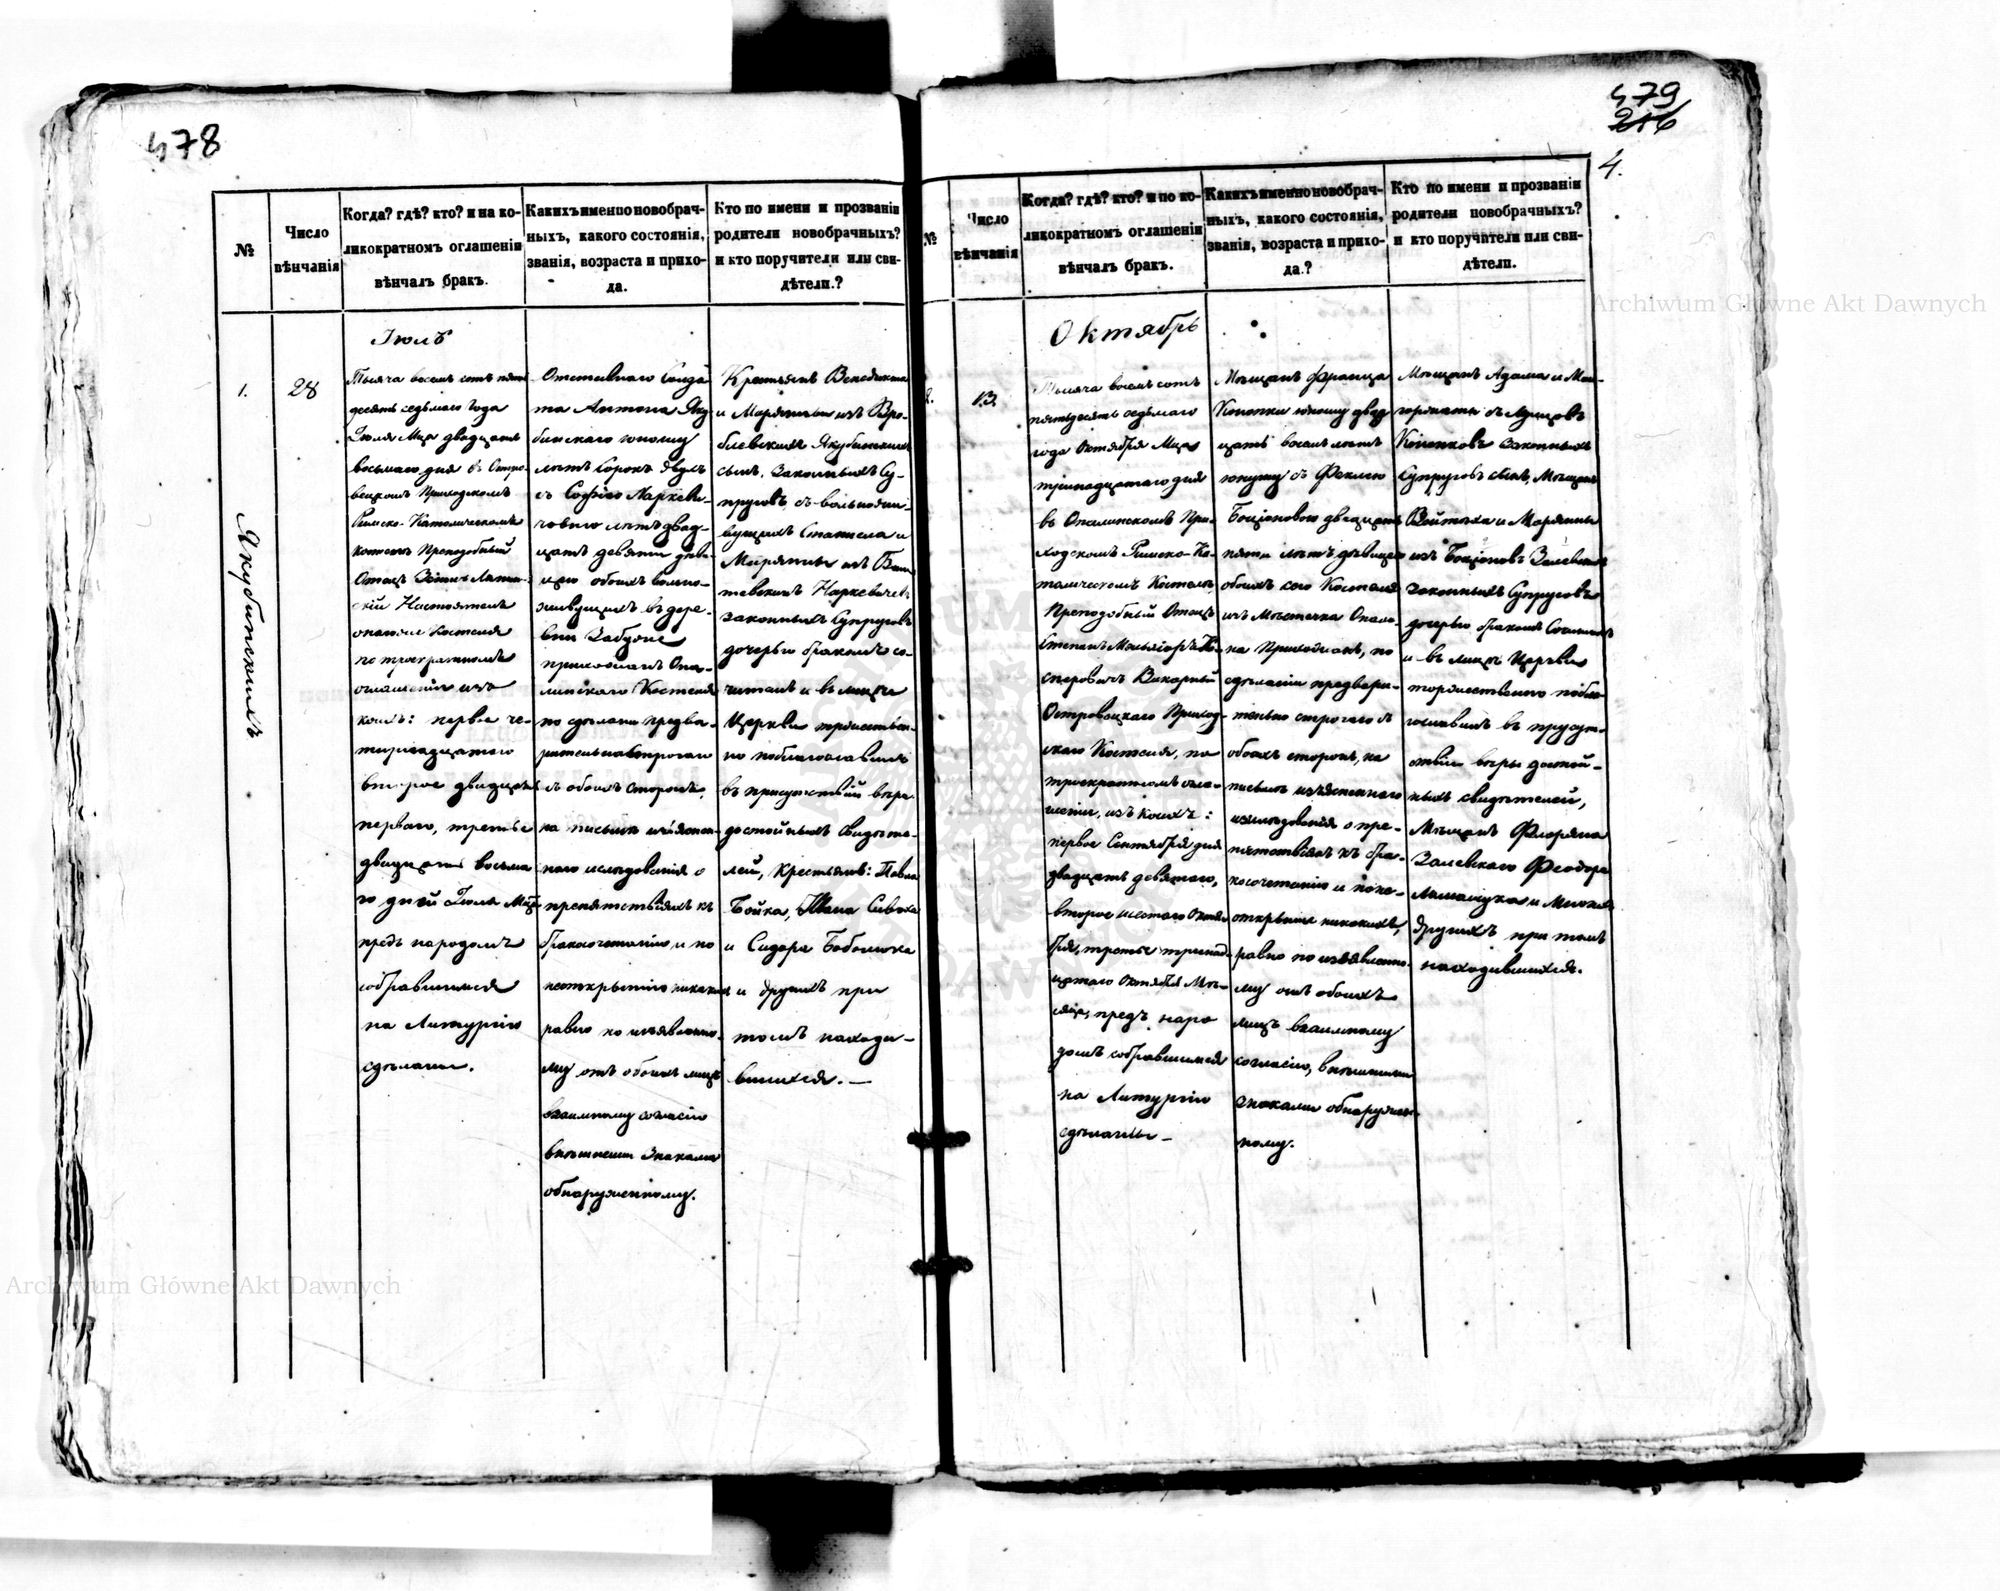 478
№
Число
вѣнчанія
Когда? гдѣ? кто? и на ко-
ликократномъ оглашеніи
вѣнчалъ бракъ.
Какихъ именно новобрач-
ныхъ, какого состоянія,
званія, возраста и прихо-
да.
Кто по имени и прозванію
родители новобрачныхъ?
и кто поручители или сви-
дѣтели.?
Якубинскихъ
1.
28
Іюль
Тысяча восемь сотъ пять
десятъ седьмаго года
Іюля Мца двадцать
восьмаго дня въ Остро-
вецкомъ Приходскомъ
Римско-Католическомъ
костелѣ Преподобный
Отецъ
скій Настоятель
онагоже Костела
по троекратномъ
оглашеніи изъ
коихъ: первое че-
тырнадцатаго
второе двадцать
перваго, третье
двадцать восьма
го дней Іюля Мца
предъ народомъ
собравшимся
на Литургію
сдѣланы.
Отставнаго Солда
та Антона Яку
бинскаго юношу
лѣтъ сорокъ двухъ
съ Софіею Наркеви-
човною лѣтъ двад-
цать девяти дѣви-
цею обоихъ вольно-
живущихъ въ дере-
вни Забузье
прихожанъ Опа-
линскаго Костела
по сдѣлани предва-
рительнаго строгаго
съ обоихъ сторонъ,
на письмѣ изъяснен-
наго изслѣдованія о
препятствіяхъ къ
бракосочетанію и по
неоткрытію никакихъ
равно по изъявленно-
му отъ обоихъ лицъ
взаимному согласію
внѣшними знаками
обнаруженному.
Крестьянъ Венедикта
и Маріянны изъ Вро-
блевскихъ Якубинскихъ
сынъ, Законныхъ Су-
пруговъ съ вольножи-
вущихъ Станислава и
Маріянны изъ
Наркевичевъ
законныхъ Супруговъ
дочерью бракомъ со-
читалъ и въ лицѣ
Церкви торжествен-
но поблагословилъ
въ присутствіи вѣры
достойныхъ свидѣте-
лей, крестьянъ: Павла
Бойка, Ивана Сивака
и Сидора
и другихъ при
томъ находи-
вшихся. —
479
216
4.
№
Число
вѣнчанія
Когда? гдѣ? кто? и по ко-
ликократномъ оглашеніи
вѣнчалъ бракъ.
Какихъ именно новобрач-
ныхъ, какого состоянія,
званія, возраста и прихо-
да.?
Кто по имени и прозванію
родители новобрачныхъ?
и кто поручители или сви-
дѣтели.
2.
13
Октябрь
Тысяча восемь сотъ
пятьдесятъ седьмаго
года Октября Мца
тринадцатаго дня
въ Опалинскомъ При-
ходскомъ Римско-Ка-
толическомъ Костелѣ
Преподобный Отецъ
Степанъ
Викарный
Островецкаго Приход-
скаго Костела, по
троекратномъ огла-
шеніи, изъ коихъ:
первое Сентября дня
двадцать девятаго,
второе шестаго Октя
бря, третье тринад-
цатаго Октября Мѣ-
сяца, предъ наро
домъ собравшимся
на Литургію
сдѣланы —
Мѣщанъ Франца
Копонка юношу двад
цать восемь лѣтъ
съ Феклею
Боціоновою двадцать
пяти лѣтъ дѣвицею
обоихъ сего Костела
изъ Мѣстечка Опали-
на Прихожанъ, по
сдѣлани предвари-
тельно строгаго съ
обоихъ сторонъ, на
письмѣ изъясненнаго
изслѣдованія о пре-
пятствіяхъ къ бра-
косочетанію и поне-
открытіе никакихъ,
равно по изъявленно-
му отъ обоихъ
лицъ взаимному
согласію, внѣшними
знаками обнаружен-
ному.
Мѣщанъ Адама и Мар-
гораты съ
Копонковъ Законныхъ
Супруговъ сынъ, Мѣщанъ
Войтѣха и Маріянны
изъ Боціоновъ Залевскихъ
законныхъ Супруговъ
дочерью бракомъ Сочиталъ
и въ лицѣ Церкви
торжественно побла-
гословилъ въ присут-
ствіи вѣры достой-
ныхъ свидѣтелей,
Мѣщанъ Флоріана
Залевскаго Феодора
и Многихъ
другихъ при томъ
находившихся.
Archiwum Główne Akt Dawnych
Archiwum Główne Akt Dawnych